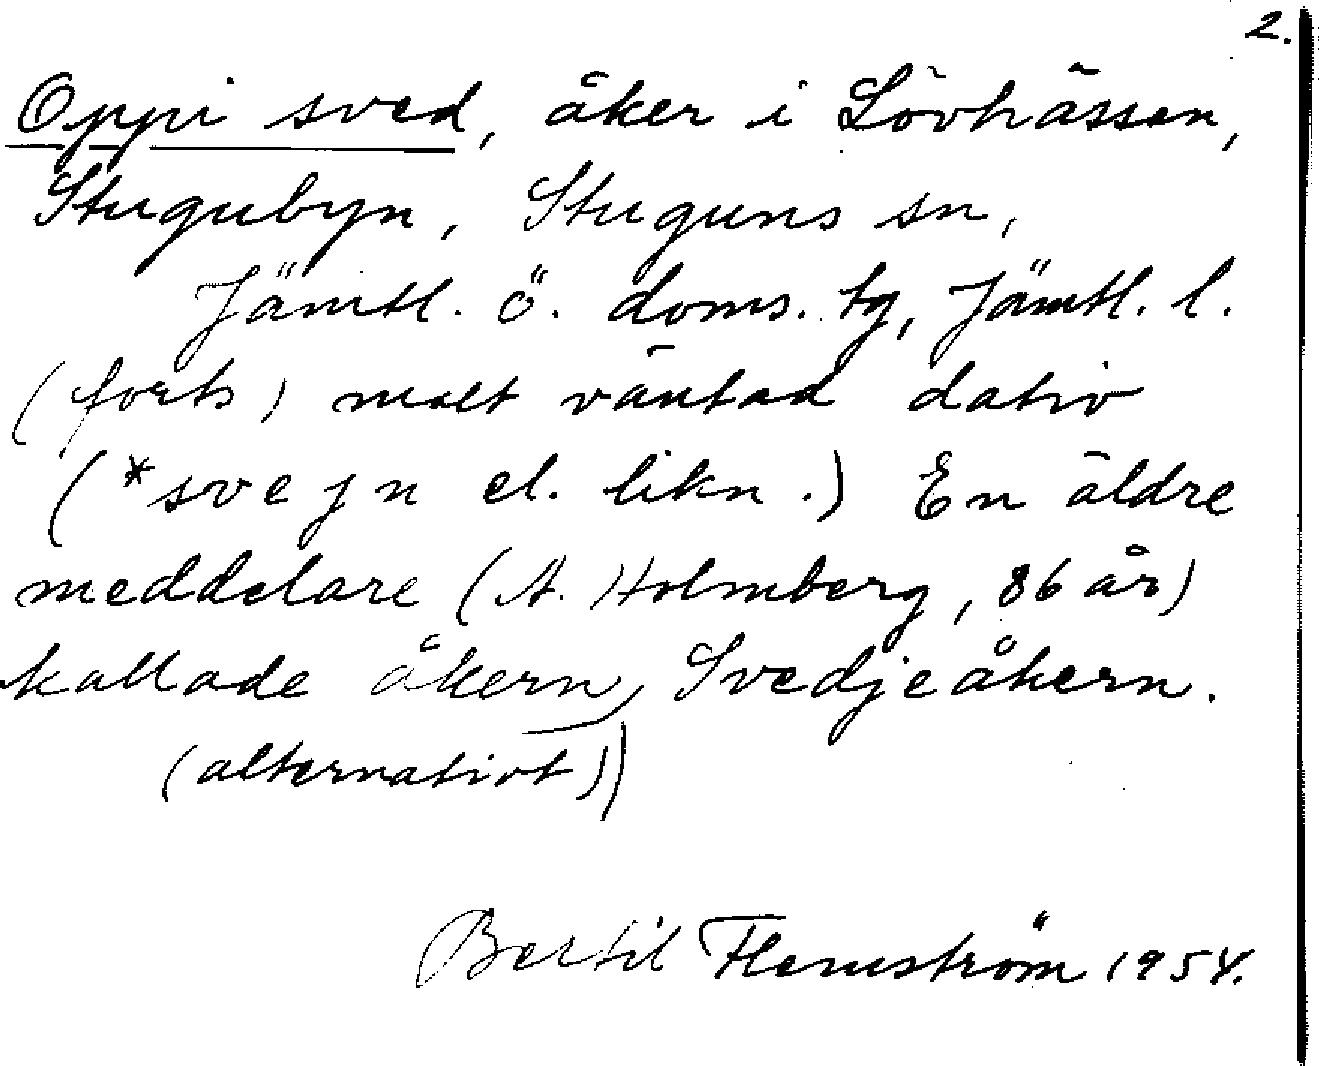 2.
Oppi sved, åker i Lövhässen,
Stugubyn, Stuguns sn,
Jämtl. ö. doms. tg, Jämtl. l.
(forts) mott väntad dativ
(*svejn el. likn.) En äldre
meddelare (A. Holmberg, 86 år)
kallade åkern, Svedjeåkern.
(alternativt))
Bertil Flemström 1954.